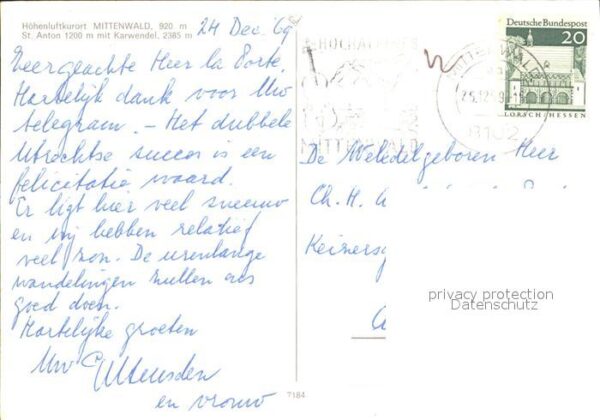 Höhenluftkurort MITTENWALD, 920 m
St. Anton 1200 m mit Karwendel, 2385 m
24 Dec '69
Zeergeachte Heer la Porte,
Hartelijk dank voor Uw
telegram. - Het dubbele
Utrechtse succes is een
felicitatie waard.
Er ligt hier veel sneeuw
en wij hebben relatief
veel zon. De urenlange
wandelingen zullen ons
goed doen.
Hartelijke groeten
Uw
en vrouw
Deutsche Bundespost
20
LORSCH/HESSEN
MITTENWALD
8102
MITTENWALD
De Weledelgeboren Heer
Ch. H.
Keizersg
privacy protection
Datenschutz
7184